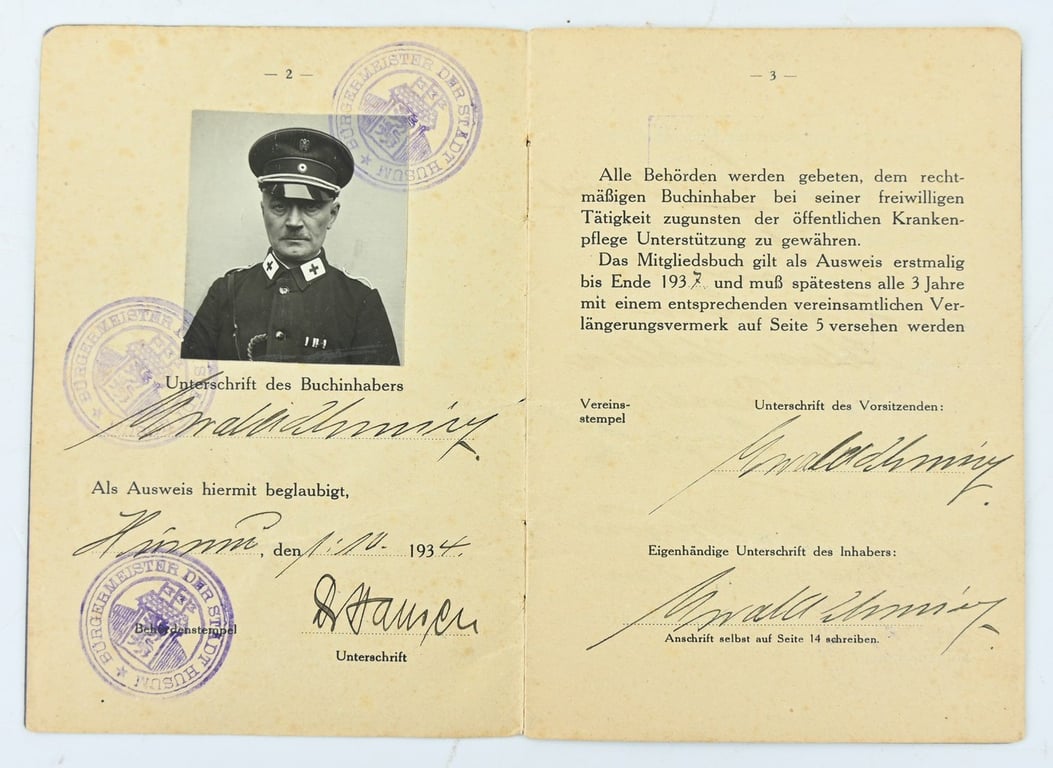 — 2 —
BÜRGERMEISTER DER STADT HUSUM
BÜRGERMEISTER
Unterschrift des Buchinhabers
Als Ausweis hiermit beglaubigt,
Husum, den 1. 10. 1934.
BÜRGERMEISTER DER STADT HUSUM
Behördenstempel
Dr Hansen
Unterschrift
— 3 —
Alle Behörden werden gebeten, dem recht-
mäßigen Buchinhaber bei seiner freiwilligen
Tätigkeit zugunsten der öffentlichen Kranken-
pflege Unterstützung zu gewähren.
Das Mitgliedsbuch gilt als Ausweis erstmalig
bis Ende 1937. und muß spätestens alle 3 Jahre
mit einem entsprechenden vereinsamtlichen Ver-
längerungsvermerk auf Seite 5 versehen werden
Vereins-
stempel
Unterschrift des Vorsitzenden:
Eigenhändige Unterschrift des Inhabers:
Anschrift selbst auf Seite 14 schreiben.